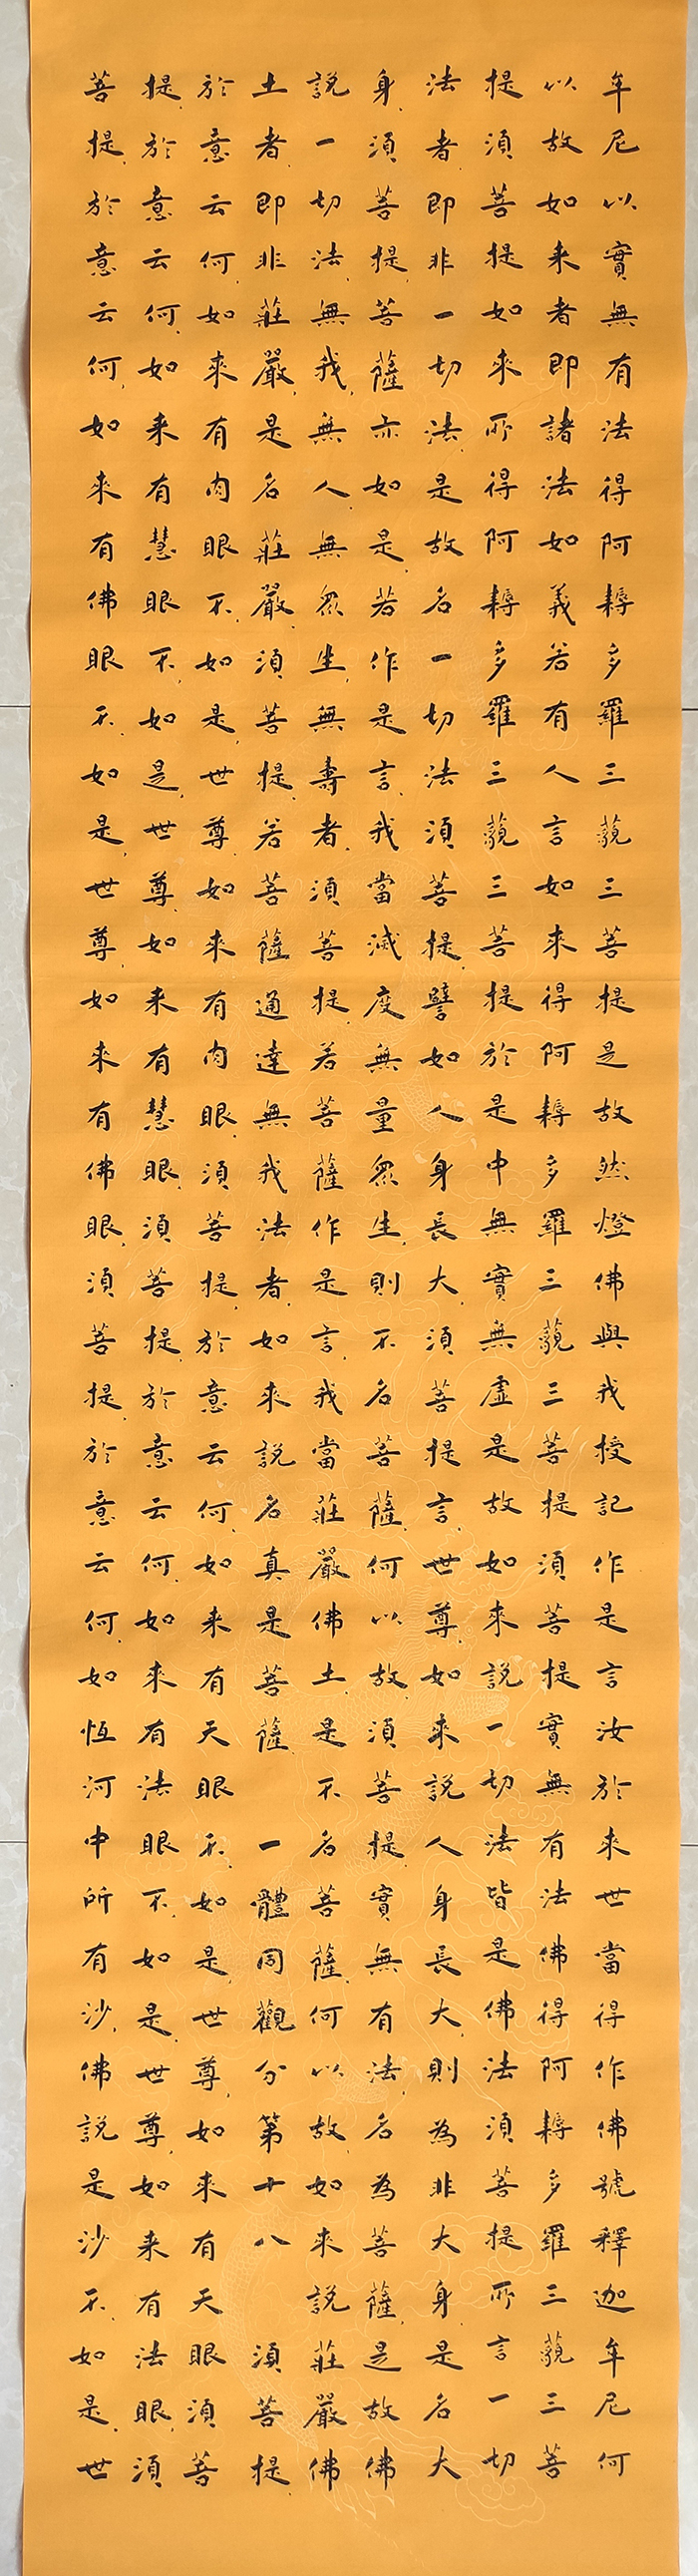 牟尼以實無有法得阿耨多羅三藐三菩提是故然燈佛與我授記作是言汝於來世當得作佛號釋迦牟尼何
以故如来者即諸法如義若有人言如來得阿耨多羅三藐三菩提須菩提實無有法佛得阿耨多羅三藐三菩
提須菩提如來所得阿耨多羅三藐三菩提於是中無實無虛是故如來說一切法皆是佛法須菩提所言一切
法者即非一切法是故名一切法須菩提譬如人身長大須菩提言、世尊、如來說人身長大、則為非大身是名大
身、須菩提、菩薩亦如是、若作是言、我當滅度無量眾生、則不名菩薩、何以故、須菩提、實無有法、名為菩薩、是故佛
說一切法、無我、無人、無眾生、無壽者、須菩提、若菩薩作是言、我當莊嚴佛土、是不名菩薩、何以故、如來說莊嚴佛
土者即非莊嚴、是名莊嚴、須菩提、若菩薩通達無我法者、如來說名真是菩薩、 一體同觀分第十八 須菩提、
於意云何、如來有肉眼不、如是、世尊、如來有肉眼、須菩提、於意云何、如来有天眼不、如是世尊、如來有天眼須菩
提、於意云何、如来有慧眼不、如是、世尊、如来有慧眼、須菩提、於意云何、如來有法眼不、如是世尊、如来有法眼、須
菩提、於意云何、如來有佛眼不、如是、世尊、如來有佛眼、須菩提、於意云何、如恆河中所有沙、佛說是沙不、如是、世